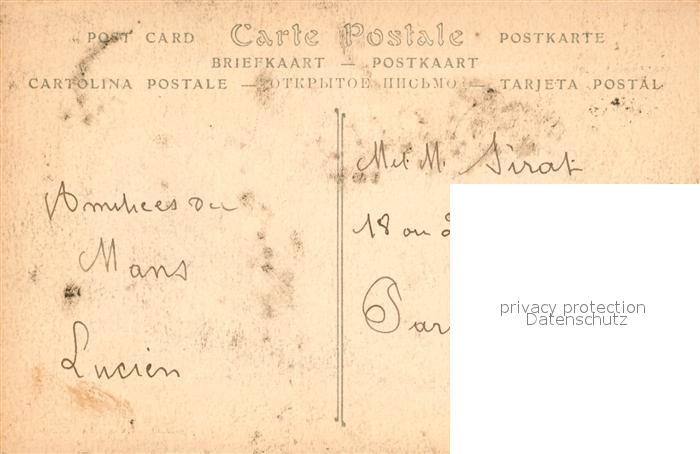 POST CARD Carte Postale POSTKARTE
BRIEFKAART — POSTKAART
CARTOLINA POSTALE — ОТКРЫТОЕ ПИСЬМО — TARJETA POSTAL
Amitiées du
Mans
Lucien
Met M. Sirat
18 ou
Par
privacy protection
Datenschutz